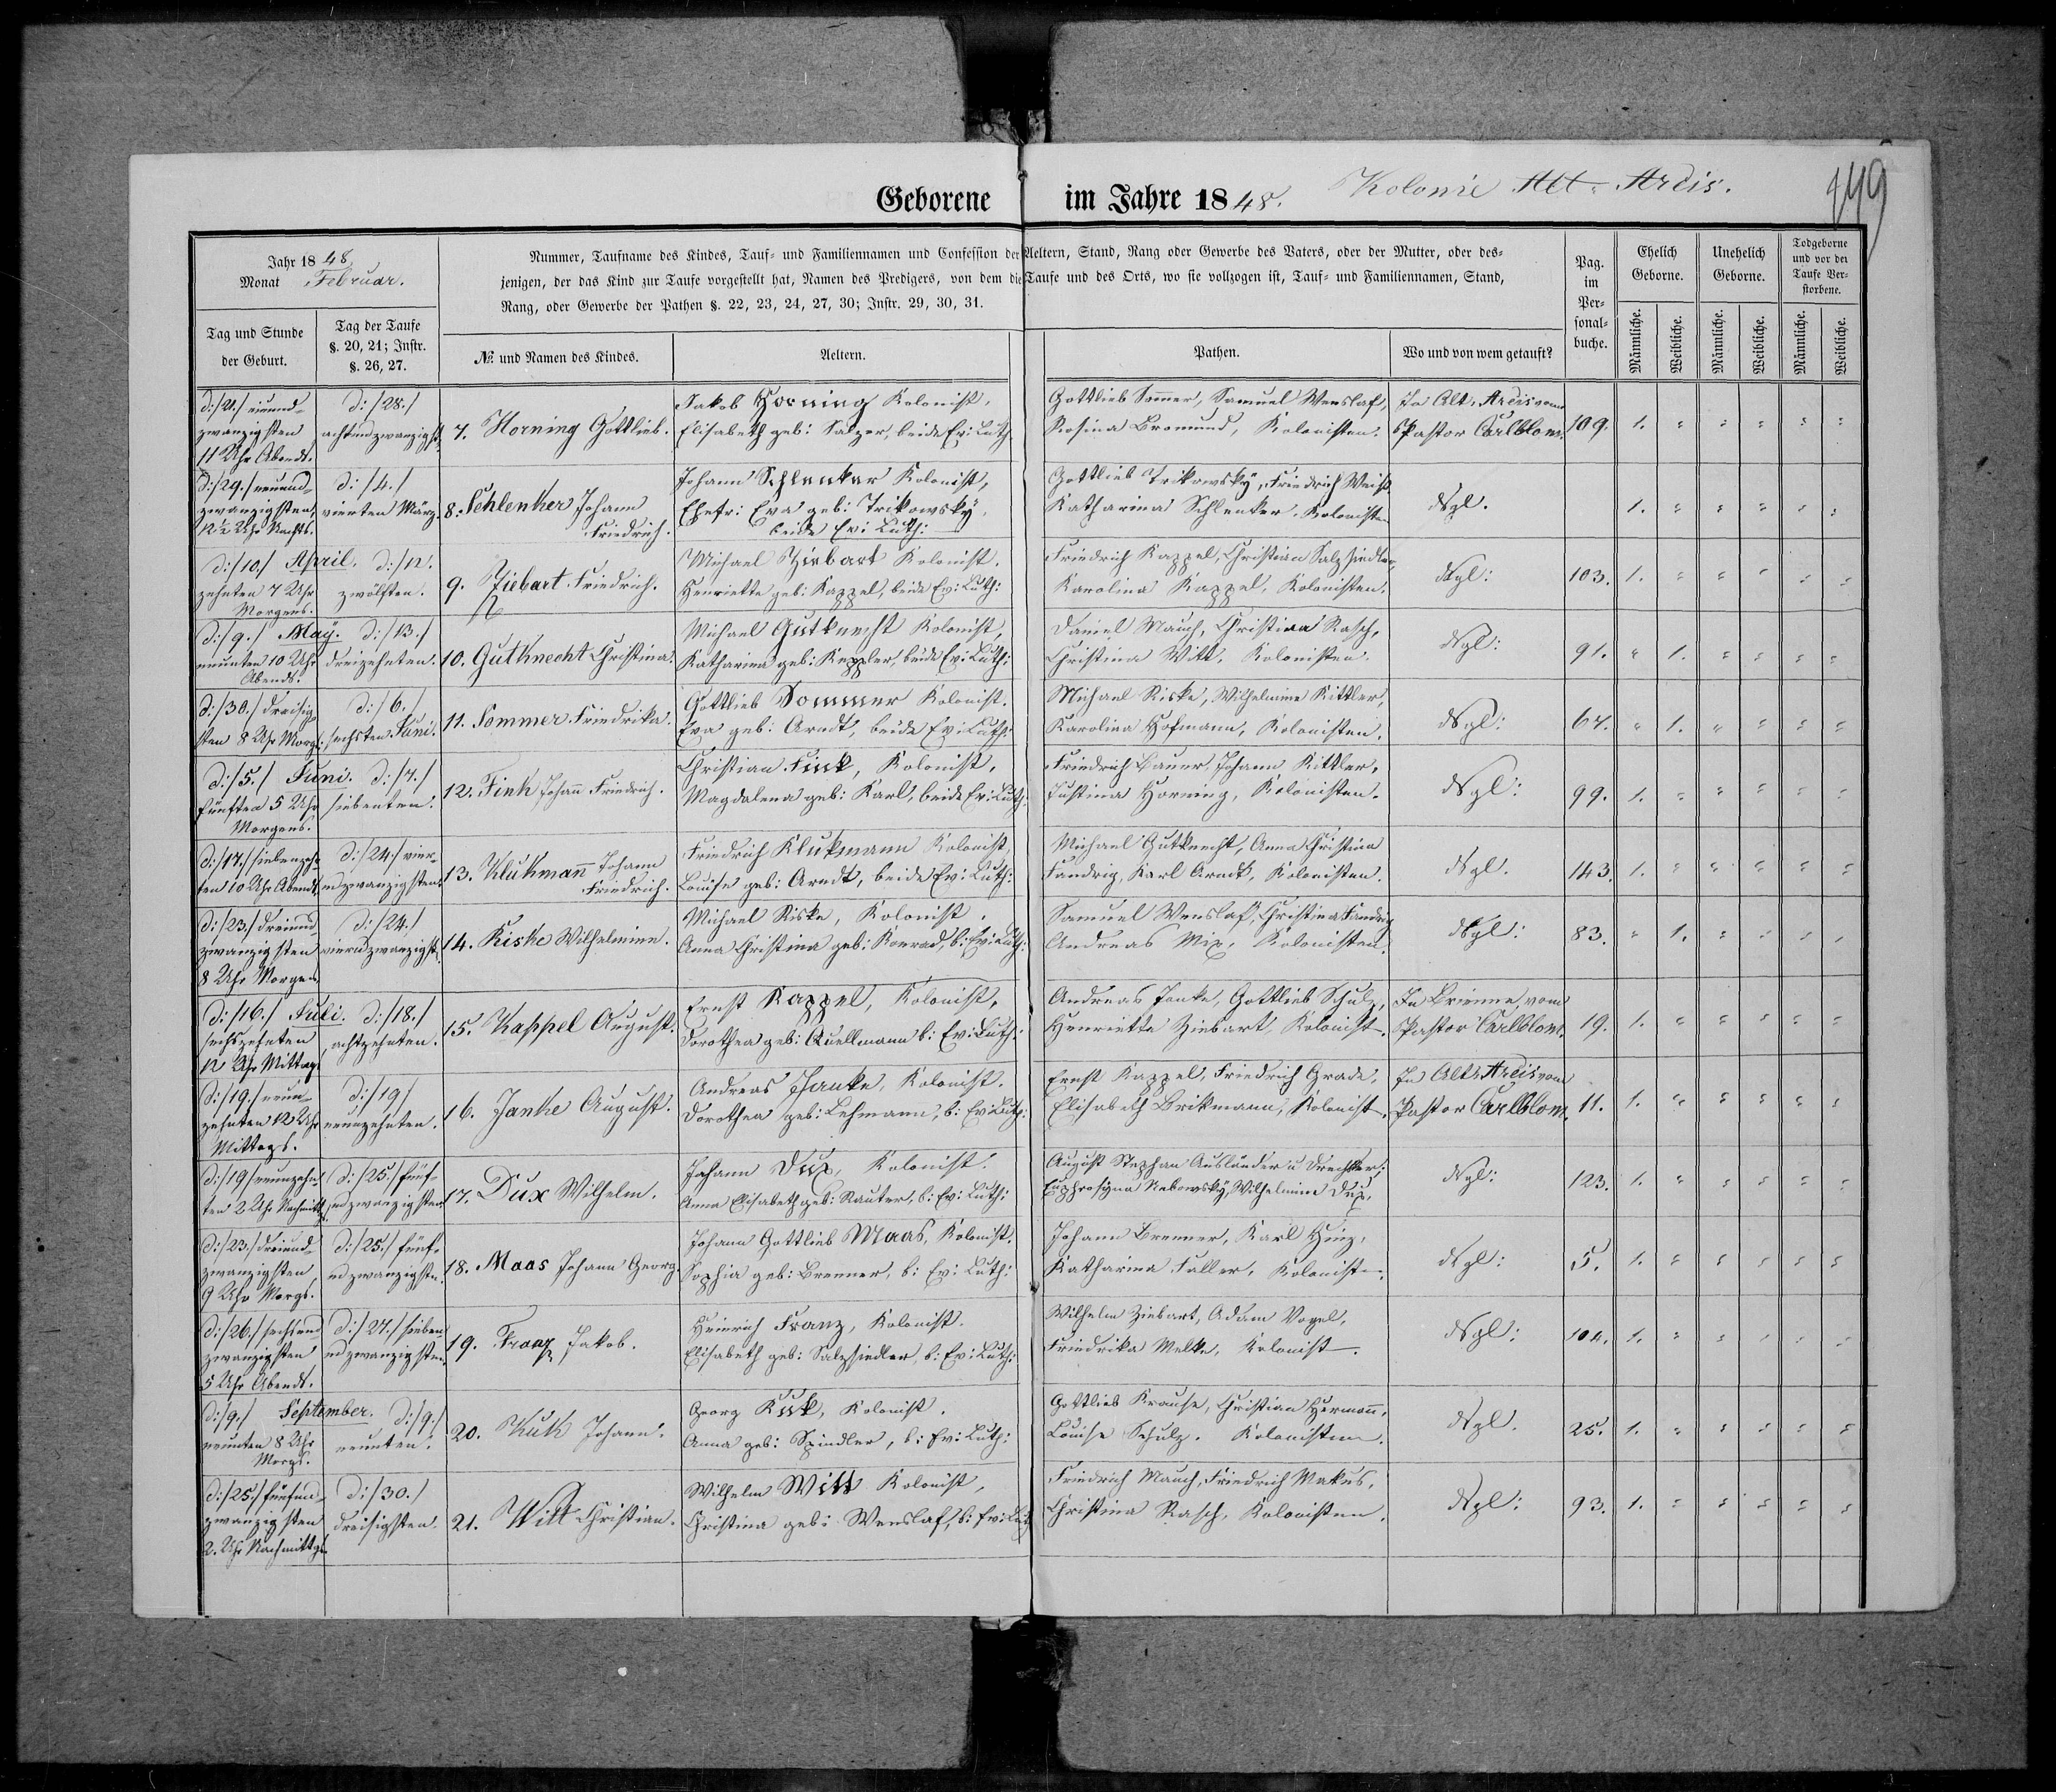 Geborene im Jahre 1848. Kolonie Alt-Arcis.
149
Jahr 1848.
Monat Februar.
Nummer, Taufname des Kindes, Tauf- und Familiennamen und Confession der Aeltern, Stand, Rang oder Gewerbe des Vaters, oder der Mutter, oder des-
jenigen, der das Kind zur Taufe vorgestellt hat, Namen des Predigers, von dem die Taufe und des Orts, wo sie vollzogen ist, Tauf- und Familiennamen, Stand,
Rang, oder Gewerbe der Pathen §. 22, 23, 24, 27, 30; Instr. 29, 30, 31.
Pag.
im
Per-
sonal-
buche.
Ehelich
Geborne.
Unehelich
Geborne.
Todgeborne
und vor der
Taufe Ver-
storbene.
Tag und Stunde
der Geburt.
Tag der Taufe
§. 20, 21; Instr.
§. 26, 27.
№ und Namen des Kindes.
Aeltern.
Pathen.
Wo und von wem getauft?
Männliche.
Weibliche.
Männliche.
Weibliche.
Männliche.
Weibliche.
d: /21./ einund-
zwanzigsten
11 Uhr Abends.
d: /28./
achtundzwanzigst.
7. Horning Gottlieb.
Jakob Horning Kolonist,
Elisabeth geb: Salzer, beide Ev: Luth:
Gottlieb Sommer, Samuel Wenslaf,
Rosina Bromund, Kolonisten.
In Alt-Arcis vom
Pastor Carlblom.
109. 1. " " " " "
d: /29./ neund-
zwanzigsten,
12½ Uhr Nachts.
d: /4./
vierten März.
8. Schlenker Johann
Friedrich.
Johann Schlenker Kolonist,
Ehefr: Eva geb: Trikowsky,
beide Ev: Luth:
Gottlieb Trikowsky, Friedrich Weiß,
Katharina Schlenker. Kolonisten
dsgl.
1. " " " " "
d: /10./ April. d: /12.
zehnten 7 Uhr
Morgens.
zwölften.
9. Ziebart Friedrich.
Michael Ziebart Kolonist.
Henriette geb: Kappel, beide Ev: Luth:
Friedrich Kappel, Christian Salzsiedler,
Karolina Kappel, Kolonisten.
dsgl:
103. 1. " " " " "
d: /9./ May. d: /13./
neunten 10 Uhr
Abends.
dreizehnten.
10. Gutknecht Christina.
Michael Gutknecht Kolonist,
Katharina geb: Keppler, beide Ev: Luth:
Daniel Mauch, Christina Rasch,
Christina Witt, Kolonisten.
dsgl:
91. " 1. " " " "
d: /30./ dreisig-
sten 8 Uhr Morgs:
d: /6./
sechsten Juni.
11. Sommer Friedrika.
Gottlieb Sommer Kolonist.
Eva geb: Arndt, beide Ev: Luth:
Michael Riske, Wilhelmine Kittler,
Karolina Hofmann, Kolonisten.
dsgl:
67. " 1. " " " "
d: /5./ Juni. d: /7./
fünften 5 Uhr
Morgens.
siebenten.
12. Fink Johann Friedrich.
Christian Fink, Kolonist,
Magdalena geb: Karl, beide Ev: Luth:
Friedrich Bauer, Johann Kittler,
Justina Horning, Kolonisten.
dsgl:
99. 1. " " " " "
d: /17./ siebenzehn-
ten 10 Uhr Abends.
d: /24./ vier-
undzwanzigsten.
13. Klukmann Johann
Friedrich.
Friedrich Klukmann Kolonist,
Louise geb: Arndt, beide Ev: Luth:
Michael Gutknecht, Anna Christina
Fandrig, Karl Arndt, Kolonisten.
dsgl.
143. 1. " " " " "
d: /23./ dreiund-
zwanzigsten
8 Uhr Morgens
d: /24./
vierundzwanzigst.
14. Riske Wilhelmine.
Michael Riske, Kolonist.
Anna Christina geb: Konrad, b: Ev: Luth:
Samuel Wenslaf, Christina Fandrig
Andreas Mix, Kolonisten.
dsgl:
83. " 1. " " " "
d: /16./ Juli. d: /18./
sechszehnten
12 Uhr Mittags
achtzehnten.
15. Kappel August.
Ernst Kappel, Kolonist,
Dorothea geb: Quellmann b: Ev: Luth:
Andreas Janke, Gottlieb Schulz,
Henriette Ziebart, Kolonist.
In Brienne, vom
Pastor Carlblom.
19. 1. " " " " "
d: /19./ neun-
zehnten 12 Uhr
Mittags.
d: /19/
neunzehnten.
16. Janke August.
Andreas Janke, Kolonist.
Dorothea geb: Lehmann, b: Ev: Luth:
Ernst Kappel, Friedrich Grade,
Elisabeth Brikmann, Kolonist.
In Alt-Arcis vom
Pastor Carlblom.
11. 1. " " " " "
d: /19/ neunzehn-
ten 2 Uhr Nachmitt.
d: /25./ fünf-
undzwanzigsten.
17. Dux Wilhelm.
Johann Dux, Kolonist.
Anna Elisabeth geb: Rauter, b: Ev: Luth:
August Stephan Ausländer u Drechsler;
Euphrosyna Nebowsky, Wilhelmine Dux.
dsgl:
123. 1. " " " " "
d: /23./ dreiund-
zwanzigsten
9 Uhr Morgs.
d: /25./ fünf-
undzwanzigsten.
18. Maas Johann Georg.
Johann Gottlieb Maas, Kolonist.
Sophia geb: Brenner, b: Ev: Luth:
Johann Brenner, Karl Hinz,
Katharina Faller, Kolonist.
dsgl:
5. 1. " " " " "
d: /26./ sechsund
zwanzigsten
5 Uhr Abends.
d: /27./ sieben
undzwanzigsten.
19. Franz Jakob.
Heinrich Franz, Kolonist.
Elisabeth geb: Salzsiedler, b: Ev: Luth:
Wilhelm Ziebart, Adam Vogel,
Friedrika Melke, Kolonist.
dsgl:
101. 1. " " " " "
d: /9./ September. d: /9./
neunten 8 Uhr
Morgs.
neunten.
20. Kuk Johann.
Georg Kuk, Kolonist.
Anna geb: Spindler, b: Ev: Luth:
Gottlieb Krause, Christian Hermann,
Louise Schulz. Kolonisten.
dsgl.
25. 1. " " " " "
d: /25./ fünfund-
zwanzigsten
2. Uhr Nachmittgs.
d: /30./
dreisigsten.
21. Witt Christian.
Wilhelm Witt Kolonist,
Christina geb: Wenslaf, b: Ev: Luth
Friedrich Mauch, Friedrich Makus,
Christina Rasch, Kolonisten.
dsgl:
93. 1. " " " " "